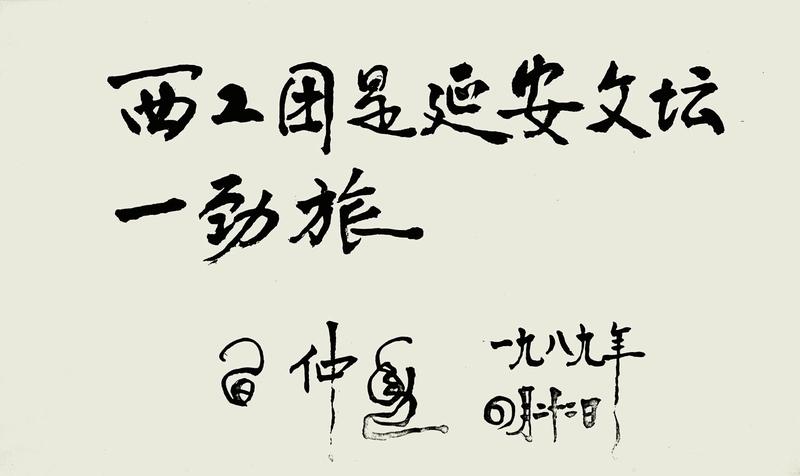 西工团是延安文坛
一劲旅
习仲勋 一九八九年
四月二十二日